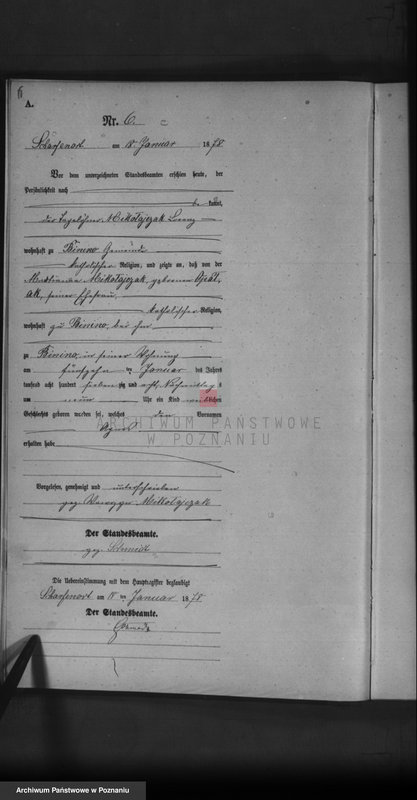 6
A.
Nr. 6.
Scharfenort am 18 Januar 1878
Vor dem unterzeichneten Standesbeamten erschien heute, der
Persönlichkeit nach
be kannt,
der Tagelöhner Mikołajczak Lorenz
wohnhaft zu Binino Gemeinde
katholischer Religion, und zeigte an, daß von der
Mikołajczak, geborenen
seiner Ehefrau,
katholischer Religion,
wohnhaft zu Binino, bei ihm
zu Binino, in seiner Wohnung
am fünfzehn ten Januar des Jahres
tausend acht hundert sieben zig und acht, Nachmittag s
um neun Uhr ein Kind weiblichen
Geschlechts geboren worden sei, welches den Vornamen
Agnes
erhalten habe
Vorgelesen, genehmigt und unterschrieben
gez. Mikołajczak
Der Standesbeamte.
gez. Schmidt
Die Uebereinstimmung mit dem Hauptregister beglaubigt
Scharfenort am 18 ten Januar 1878
Der Standesbeamte.
ARCHIWUM PAŃSTWOWE
W POZNANIU
Archiwum Państwowe w Poznaniu
Archiwum Państwowe w Poznaniu